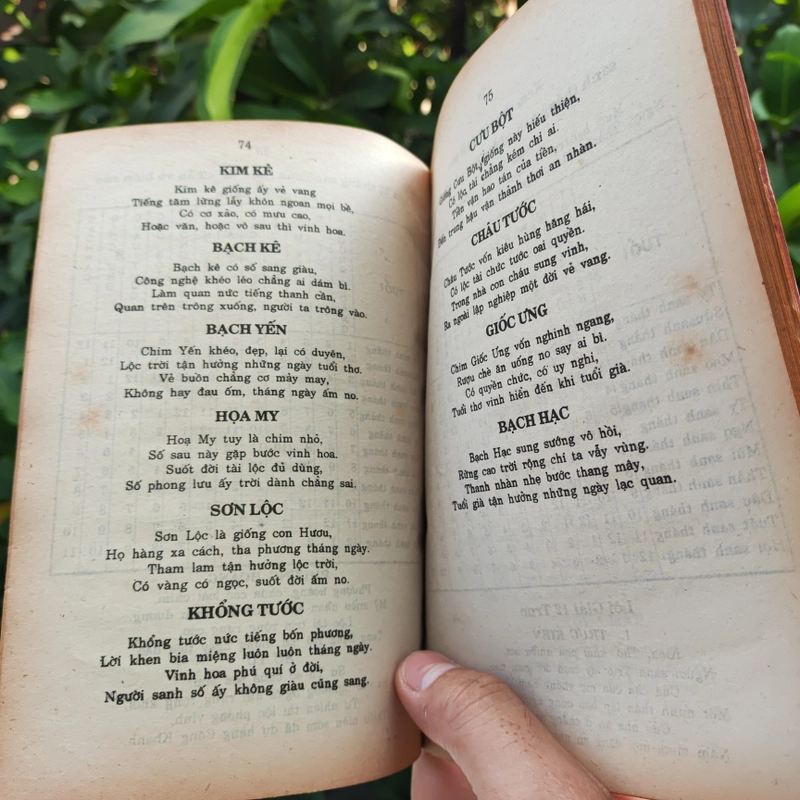 74
KIM KÊ
Kim kê giống ấy vẻ vang
Tiếng tăm lừng lẫy khôn ngoan mọi bề,
Có cơ xảo, có mưu cao,
Hoặc văn, hoặc võ sau thì vinh hoa.
BẠCH KÊ
Bạch kê có số sang giàu,
Công nghệ khéo léo chẳng ai dám bì.
Làm quan nức tiếng thanh cần,
Quan trên trông xuống, người ta trông vào.
BẠCH YẾN
Chim Yến khéo, đẹp, lại có duyên,
Lộc trời tận hưởng những ngày tuổi thơ.
Vẻ buồn chẳng cơ mảy may,
Không hay đau ốm, tháng ngày ấm no.
HỌA MY
Hoạ My tuy là chim nhỏ,
Số sau này gặp bước vinh hoa.
Suốt đời tài lộc đủ dùng,
Số phong lưu ấy trời dành chẳng sai.
SƠN LỘC
Sơn Lộc là giống con Hươu,
Họ hàng xa cách, tha phương tháng ngày.
Tham lam tận hưởng lộc trời,
Có vàng có ngọc, suốt đời ấm no.
KHỔNG TƯỚC
Khổng tước nức tiếng bốn phương,
Lời khen bia miệng luôn luôn tháng ngày.
Vinh hoa phú quí ở đời,
Người sanh số ấy không giàu cũng sang.
75
CƯU BỘT
Cưu Bột, giống này hiếu thiện,
Có lộc, tài chẳng kém chi ai.
Tiền vận hao tán của tiền,
Đến trung hậu vận thảnh thơi an nhàn.
CHÂU TƯỚC
Châu Tước vốn kiêu hùng hăng hái,
Có lộc tài chức tước oai quyền.
Trong nhà con cháu sung vinh,
Ra ngoài lập nghiệp một đời vẻ vang.
GIỐC ƯNG
Chim Giốc Ưng vốn nghinh ngang,
Rượu chè ăn uống no say ai bì.
Có quyền chức, có uy nghi,
Tuổi thơ vinh hiển đến khi tuổi già.
BẠCH HẠC
Bạch Hạc sung sướng vô hồi,
Rừng cao trời rộng chỉ ta vẫy vùng.
Thanh nhàn nhẹ bước thang mây,
Tuổi già tận hưởng những ngày lạc quan.